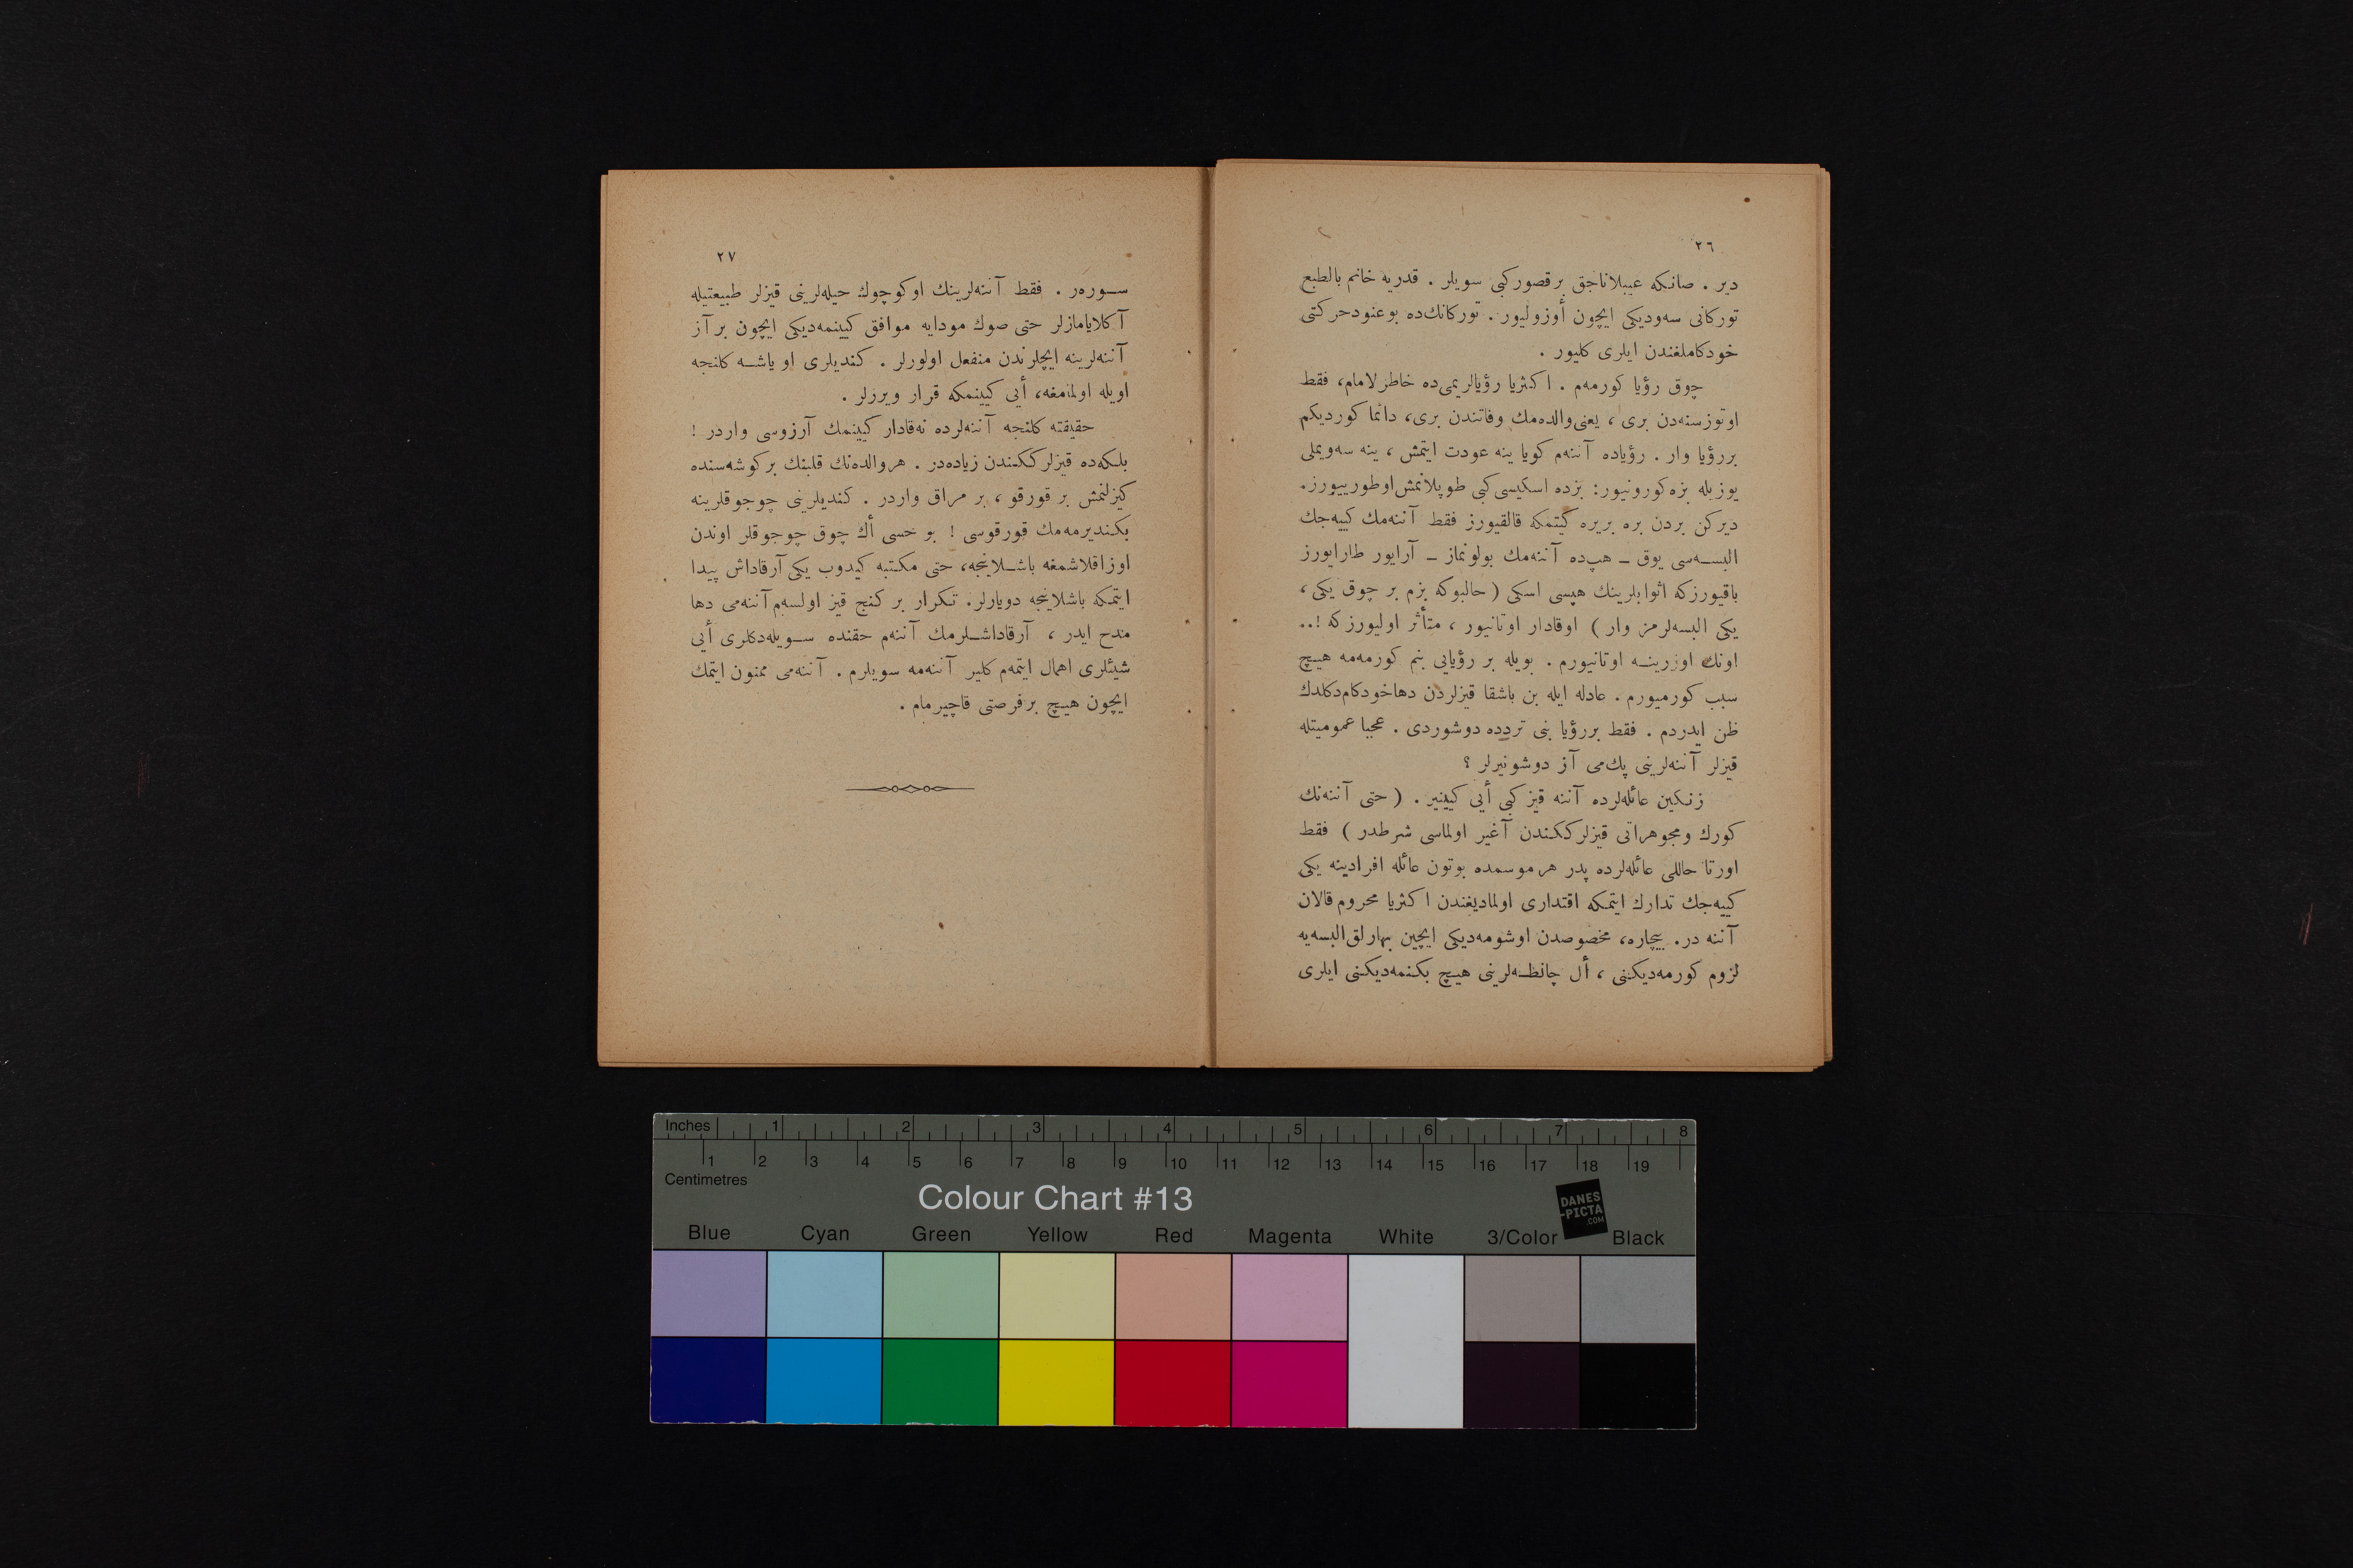 ٢٦
دیر . صانكه عیبلاناجق بر قصور كبی سویلر . قدریه خانم بالطبع
توركانی سه‌ودیكی ایچون أوزولیور . توركانك‌ده بو عنود حركتی
خودكاملغندن ایلری كلیور .
چوق رؤیا كورمه‌م . اكثریا رؤیالریمی‌ده خاطرلامام، فقط
اوتوز سنه‌دن بری ، یعنی والده‌مك وفاتندن بری، دائما كوردیكم
بر رؤیا وار . رؤیاده آننه‌م كویا ینه عودت ایتمش ، ینه سه‌ویملی
یوزیله بزه كورونیور: بزده اسكیسی كبی طوپلانمش اوطورییورز.
دیركن بردن بره بریره كیتمكه قالقیورز فقط آننه‌مك كییه‌جك
البسه‌سی یوق ــ هپ‌ده آننه‌مك بولونماز ــ آرایور طارایورز
باقیورزكه اثوابلرینك هپسی اسكی ( حالبوكه بزم بر چوق یكی ،
یكی البسه‌لرمز وار ) اوقادار اوتانیور ، متأثر اولیورز كه !..
اونك اوزرینه اوتانیورم . بویله بر رؤیایی بنم كورمه‌مه هیچ
سبب كورمیورم . عادله ایله بن باشقا قیزلردن دها خودكام دكلدك
ظن ایدردم . فقط بر رؤیا بنی تردده دوشوردی . عجبا عمومیتله
قیزلر آننه‌لرینی پك‌می آز دوشونیرلر ؟
زنكین عائله‌لرده آننه قیز كبی أیی كیینیر . ( حتی آننه‌نك
كورك و مجوهراتی قیزلركـكندن آغیر اولماسی شرطدر ) فقط
اورتا حاللی عائله‌لرده پدر هر موسمده بوتون عائله افرادینه یكی
كییه‌جك تدارك ایتمكه اقتداری اولمادیغندن اكثریا محروم قالان
آننه در. بیچاره، مخصوصدن اوشومه‌دیكی ایچین بهارلق البسه‌یه
لزوم كورمه‌دیكنی ، أل چانطه‌لرینی هیچ بكنمه‌دیكنی ایلری
٢٧
سوره‌ر . فقط آننه‌لرینك او كوچوك حیله‌لرینی قیزلر طبیعتیله
آكلایامازلر حتی صوك مودایه موافق كیینمه‌دیكی ایچون بر آز
آننه‌لرینه ایچلرندن منفعل اولورلر . كندیلری او یاشه كلنجه
اویله اولمامغه، أیی كیینمكه قرار ویررلر .
حقیقته كلنجه آننه‌لرده نه‌قادار كیینمك آرزوسی واردر !
بلكه‌ده قیزلركـكندن زیاده‌در . هر والده‌نك قلبنك بر كوشه‌سنده
كیزلنمش بر قورقو ، بر مراق واردر . كندیلرینی چوجوقلرینه
بكندیرمه‌مك قورقوسی ! بو حسی أك چوق چوجوقلر اوندن
اوزاقلاشمغه باشلاینجه، حتی مكتبه كیدوب یكی آرقاداش پیدا
ایتمكه باشلاینجه دویارلر. تكرار بر كنج قیز اولسه‌م آننه‌می دها
مدح ایدر ، آرقاداشلرمك آننه‌م حقنده سویله‌دكلری أیی
شیئلری اهمال ایتمه‌م كلیر آننه‌مه سویلرم . آننه‌می ممنون ایتمك
ایچون هیچ بر فرصتی قاچیرمام .
Inches 1 2 3 4 5 6 7 8
1 2 3 4 5 6 7 8 9 10 11 12 13 14 15 16 17 18 19
Centimetres
Colour Chart #13
DANES
-PICTA
.COM
Blue Cyan Green Yellow Red Magenta White 3/Color Black